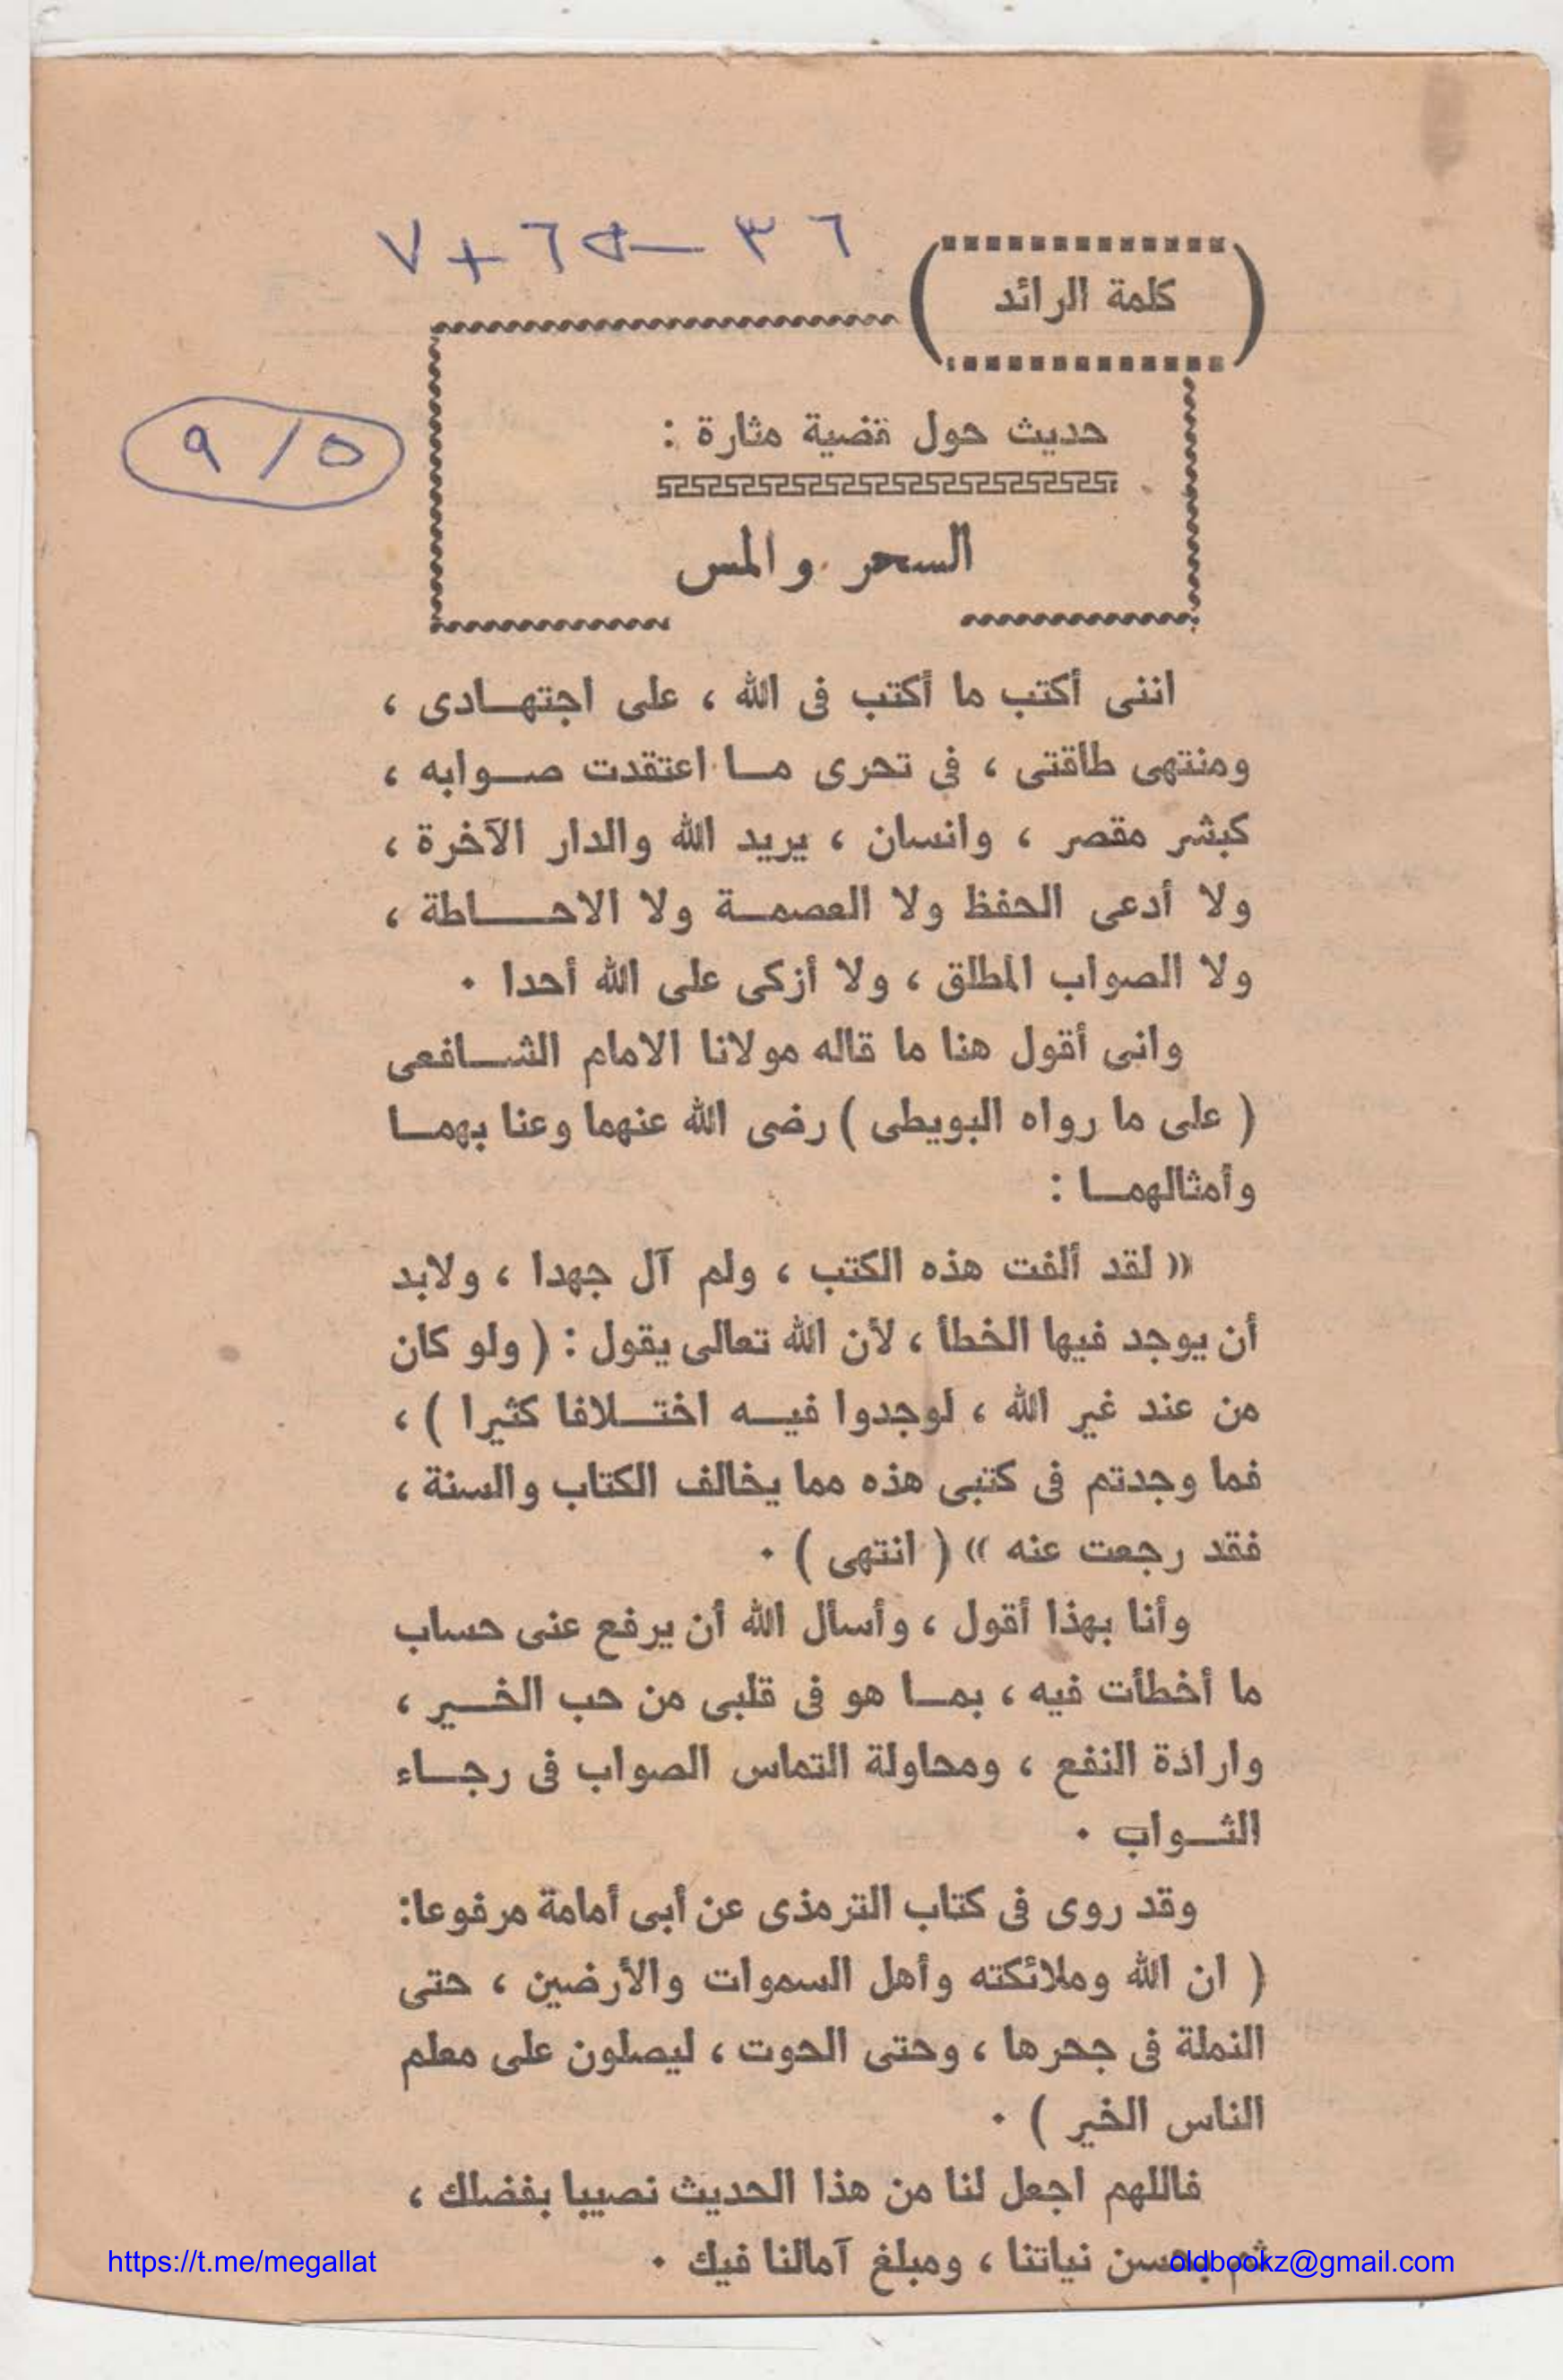 ٧ + ٦٥ — ٣٦
كلمة الرائد
٩ / ٥
حديث حول قضية مثارة :
السحر والمس
اننى أكتب ما أكتب فى الله ، على اجتهـادى ،
ومنتهى طاقتى ، فى تحرى مـا اعتقدت صـوابه ،
كبشر مقصر ، وانسان ، يريد الله والدار الآخرة ،
ولا أدعى الحفظ ولا العصمـة ولا الاحـاطة ،
ولا الصواب المطلق ، ولا أزكى على الله أحدا ٠
وانى أقول هنا ما قاله مولانا الامام الشـافعى
( على ما رواه البويطى ) رضى الله عنهما وعنا بهمـا
وأمثالهمـا :
« لقد ألفت هذه الكتب ، ولم آل جهدا ، ولابد
أن يوجد فيها الخطأ ، لأن الله تعالى يقول : ( ولو كان
من عند غير الله ، لوجدوا فيـه اختـلافا كثيرا ) ،
فما وجدتم فى كتبى هذه مما يخالف الكتاب والسنة ،
فقد رجعت عنه » ( انتهى ) ٠
وأنا بهذا أقول ، وأسأل الله أن يرفع عنى حساب
ما أخطأت فيه ، بمـا هو فى قلبى من حب الخـير ،
وارادة النفع ، ومحاولة التماس الصواب فى رجـاء
الثـواب ٠
وقد روى فى كتاب الترمذى عن أبى أمامة مرفوعا:
( ان الله وملائكته وأهل السموات والأرضين ، حتى
النملة فى جحرها ، وحتى الحوت ، ليصلون على معلم
الناس الخير ) ٠
فاللهم اجعل لنا من هذا الحديث نصيبا بفضلك ،
ثم بحسن نياتنا ، ومبلغ آمالنا فيك ٠
oldbookz@gmail.com
https://t.me/megallat